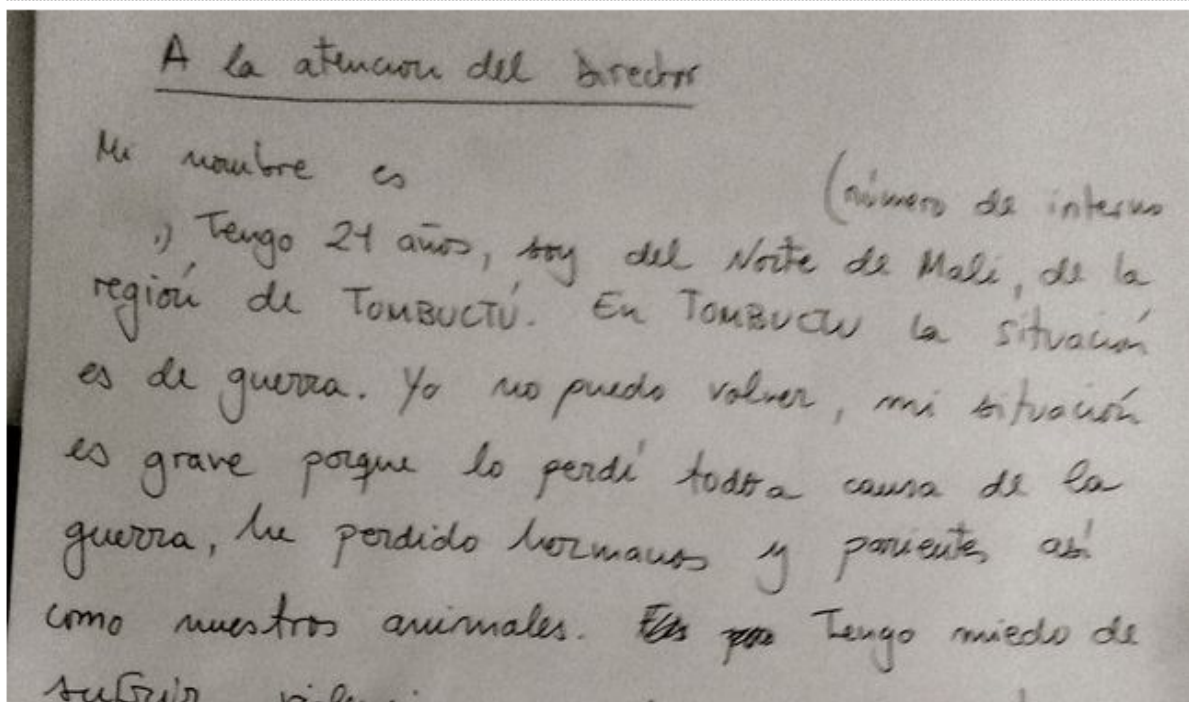 A la atencion del Director
Mi nombre es (número de interno
,) Tengo 21 años, soy del Norte de Mali, de la
región de TOMBUCTÚ. En TOMBUCTU la situación
es de guerra. Yo no puedo volver, mi situación
es grave porque lo perdí todo a causa de la
guerra, he perdido hermanos y parientes así
como nuestros animales. Tengo miedo de
sufrir